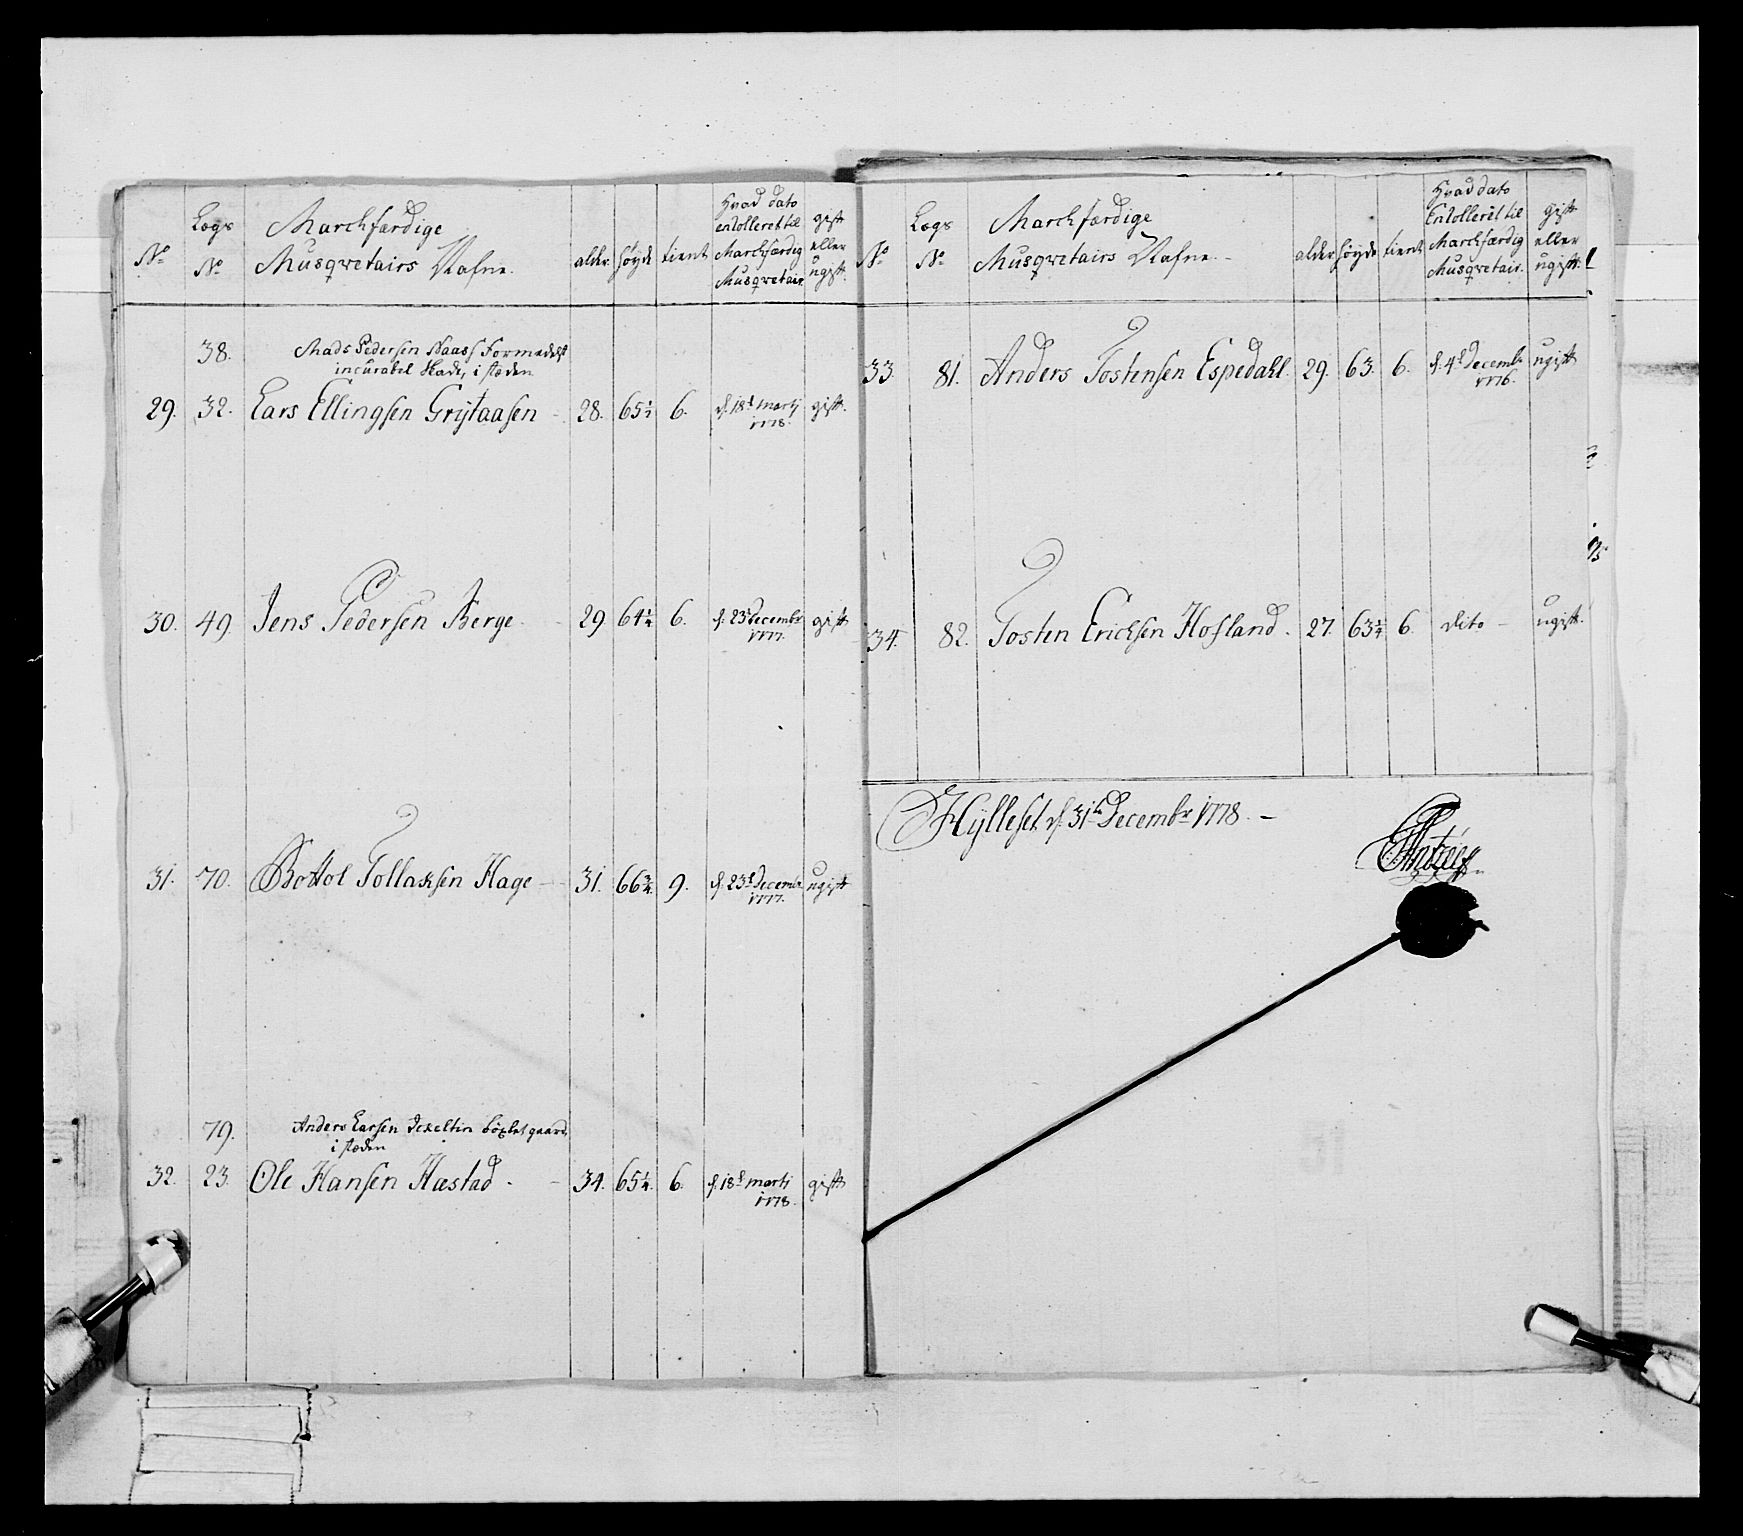 No Lægs No Marchfærdige Musqvetairs Nafne. alder høyde tient Hvad dato enrolleret til Marchfærdig Musqvetair gift eller ugift.
38. Mads Pedersen Naaes Formedelst
incurabel Skade, i stæden
29. 32. Lars Ellingsen Grijtaasen - 28. 65½ 6. d. 18de marti 1778. gift.
30. 49. Jens Pedersen Berge. 29 64¼ 6. d. 23de decembr 1777. gift
31. 70. Bottol Tollaksen Hage - 31. 66¾ 9. d. 23de Decembr 1777. ugift
79. Anders Larsen
i stæden
32. 23. Ole Hansen Hastad - 34. 65¼ 6. d. 18de marti 1778. gift
No Lægs No Marchfærdige Musqvetairs Nafne. alder høyde tient Hvad dato Enrolleret til Marchfærdig Musqvetair. gift eller ugift.
33. 81. Anders Tostensen Espedahl. 29. 63. 6. d. 4de Decembr 1776. ugift
34. 82. Tosten Erichsen Hofland. 27. 63¼ 6. dito - ugift.
Hylleset d. 31te Decembr 1778. -